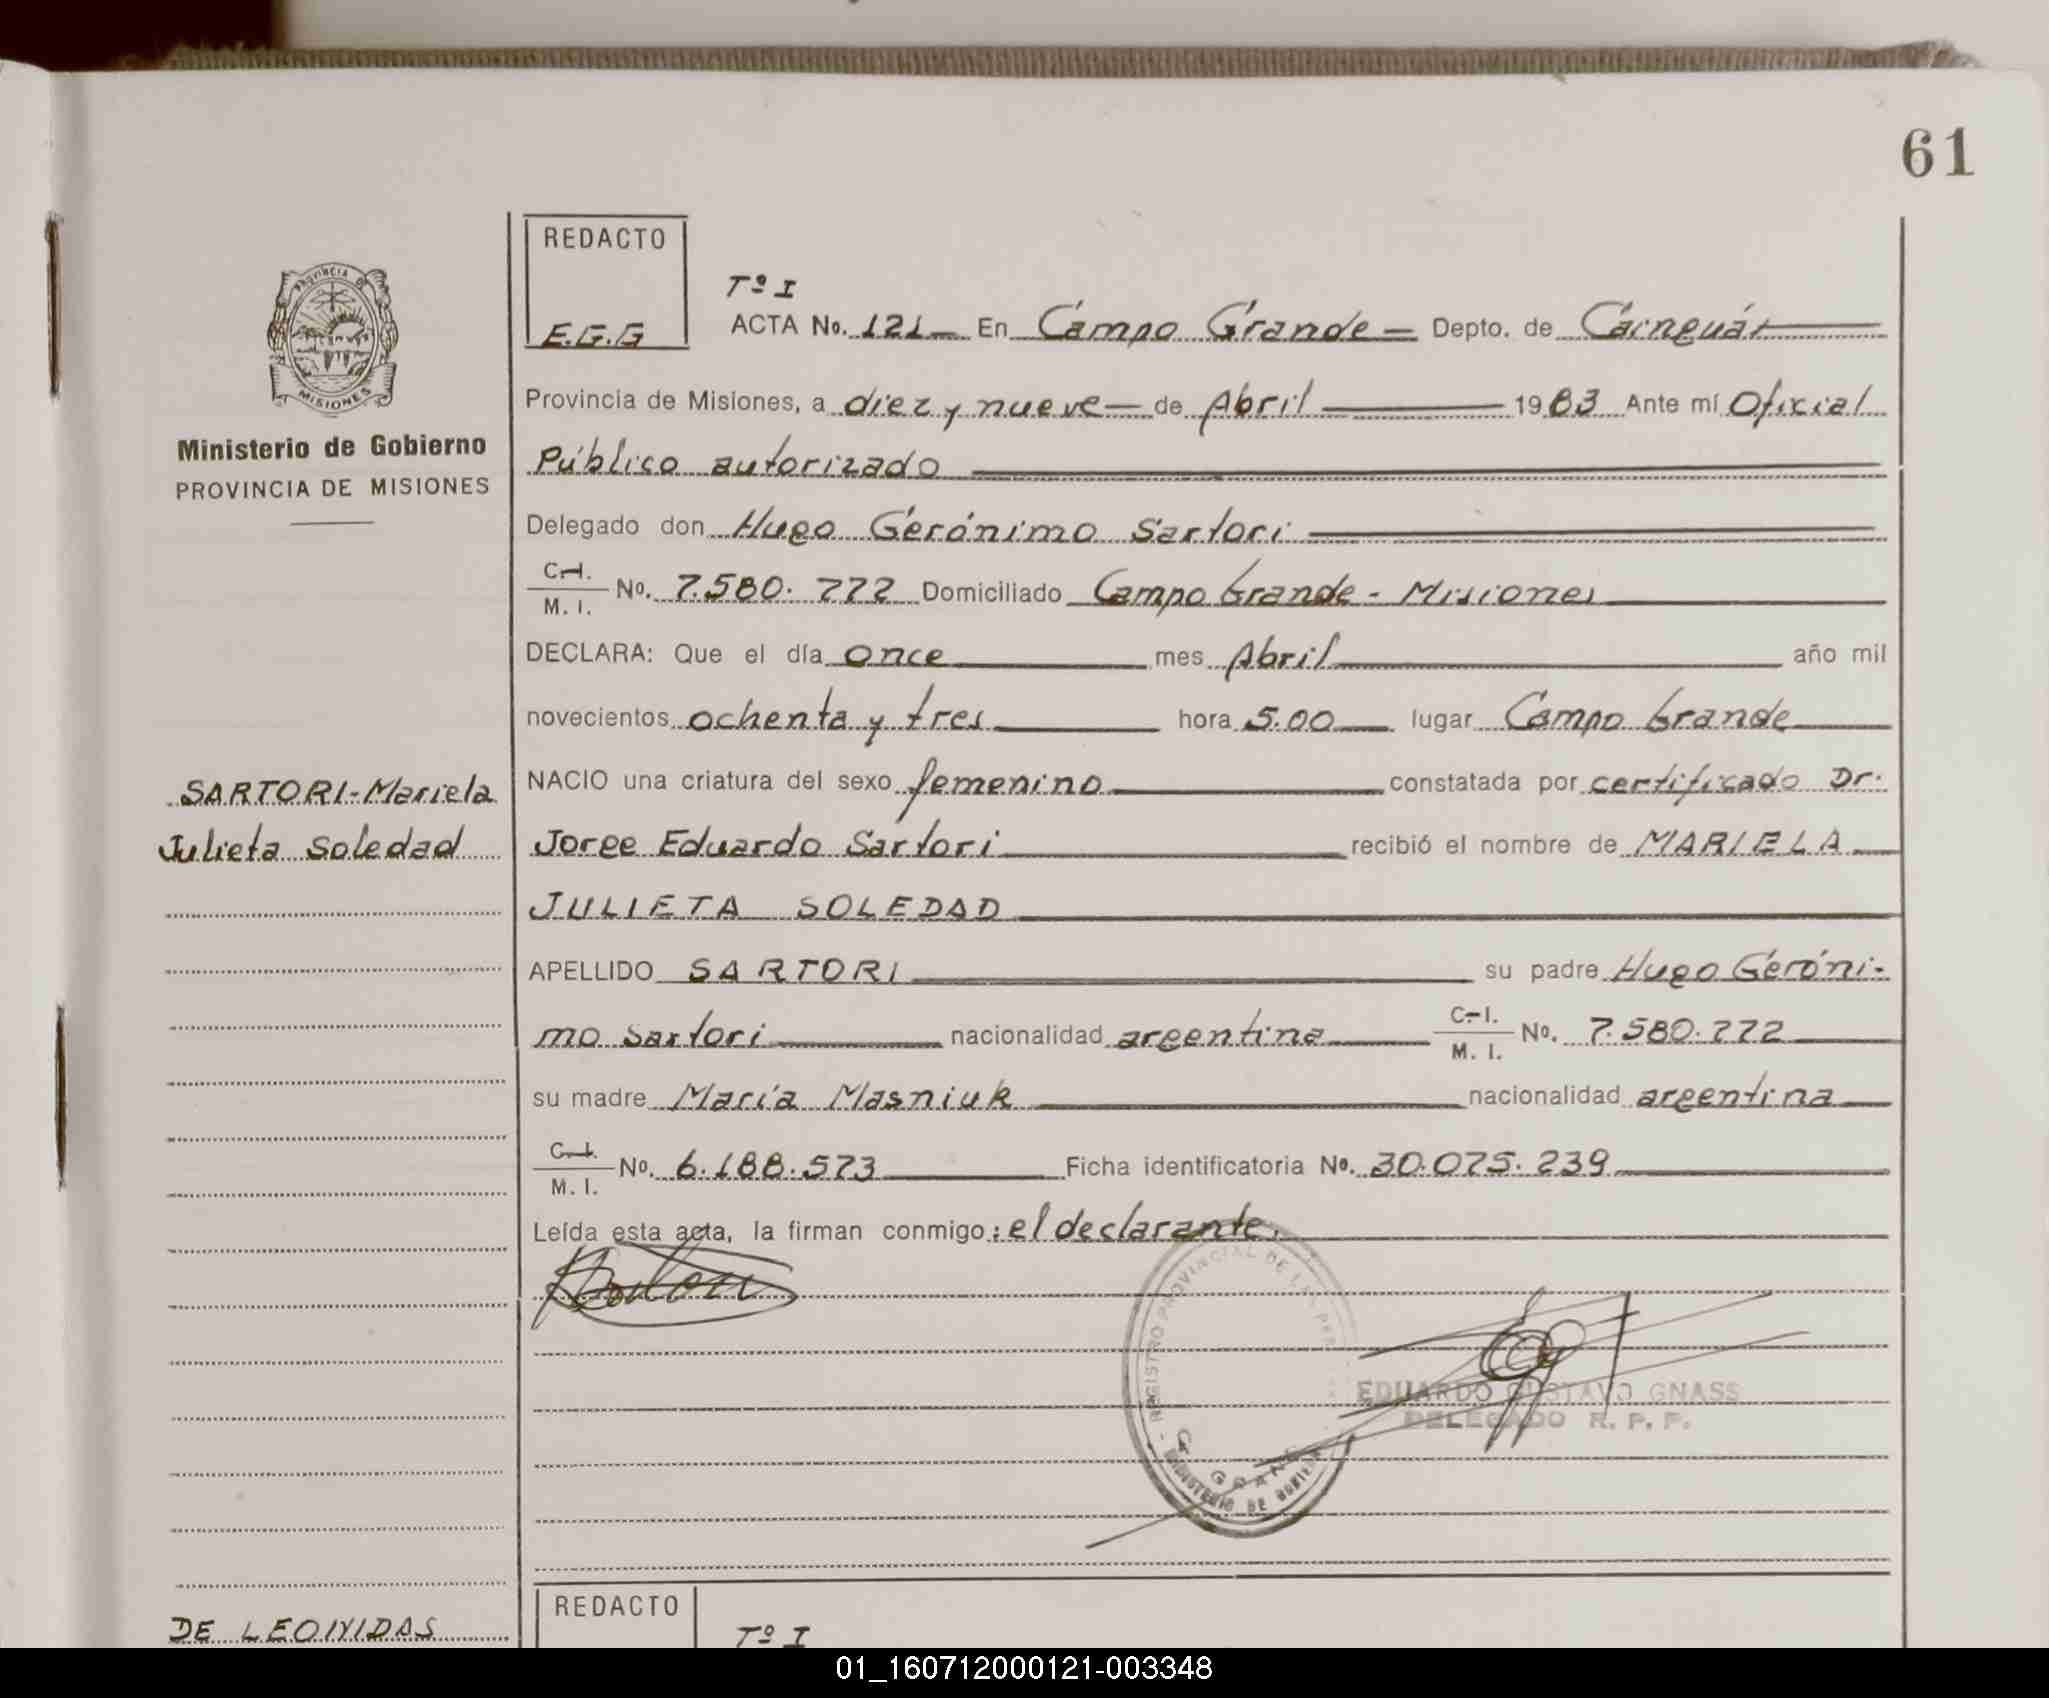 61
REDACTO
E.G.G
Tº I
ACTA No. 121 En Campo Grande Depto. de Cainguás
PROVINCIA DE
MISIONES
Ministerio de Gobierno
PROVINCIA DE MISIONES
Provincia de Misiones, a diez y nueve de Abril 1983 Ante mí Oficial
Público autorizado
Delegado don Hugo Gerónimo Sartori
C.I.
M. I. No. 7.580.772 Domiciliado Campo Grande - Misiones
DECLARA: Que el día once mes Abril año mil
novecientos ochenta y tres hora 5.00 lugar Campo Grande
SARTORI-Mariela
Julieta Soledad
NACIO una criatura del sexo femenino constatada por certificado Dr.
Jorge Eduardo Sartori recibió el nombre de MARIELA
JULIETA SOLEDAD
APELLIDO SARTORI su padre Hugo Geróni-
mo Sartori nacionalidad argentina C.I. M. I. No. 7.580.772
su madre María Masniuk nacionalidad argentina
C.I.
M. I. No. 6.188.573 Ficha identificatoria No. 30.075.239
Leída esta acta, la firman conmigo: el declarante.
REGISTRO PROVINCIAL DE LAS
GRANDE
MINISTERIO DE GOBIERNO
EDUARDO GUSTAVO GNASS
DELEGADO R. P. P.
DE LEONIDAS
REDACTO
Tº I
01_160712000121-003348